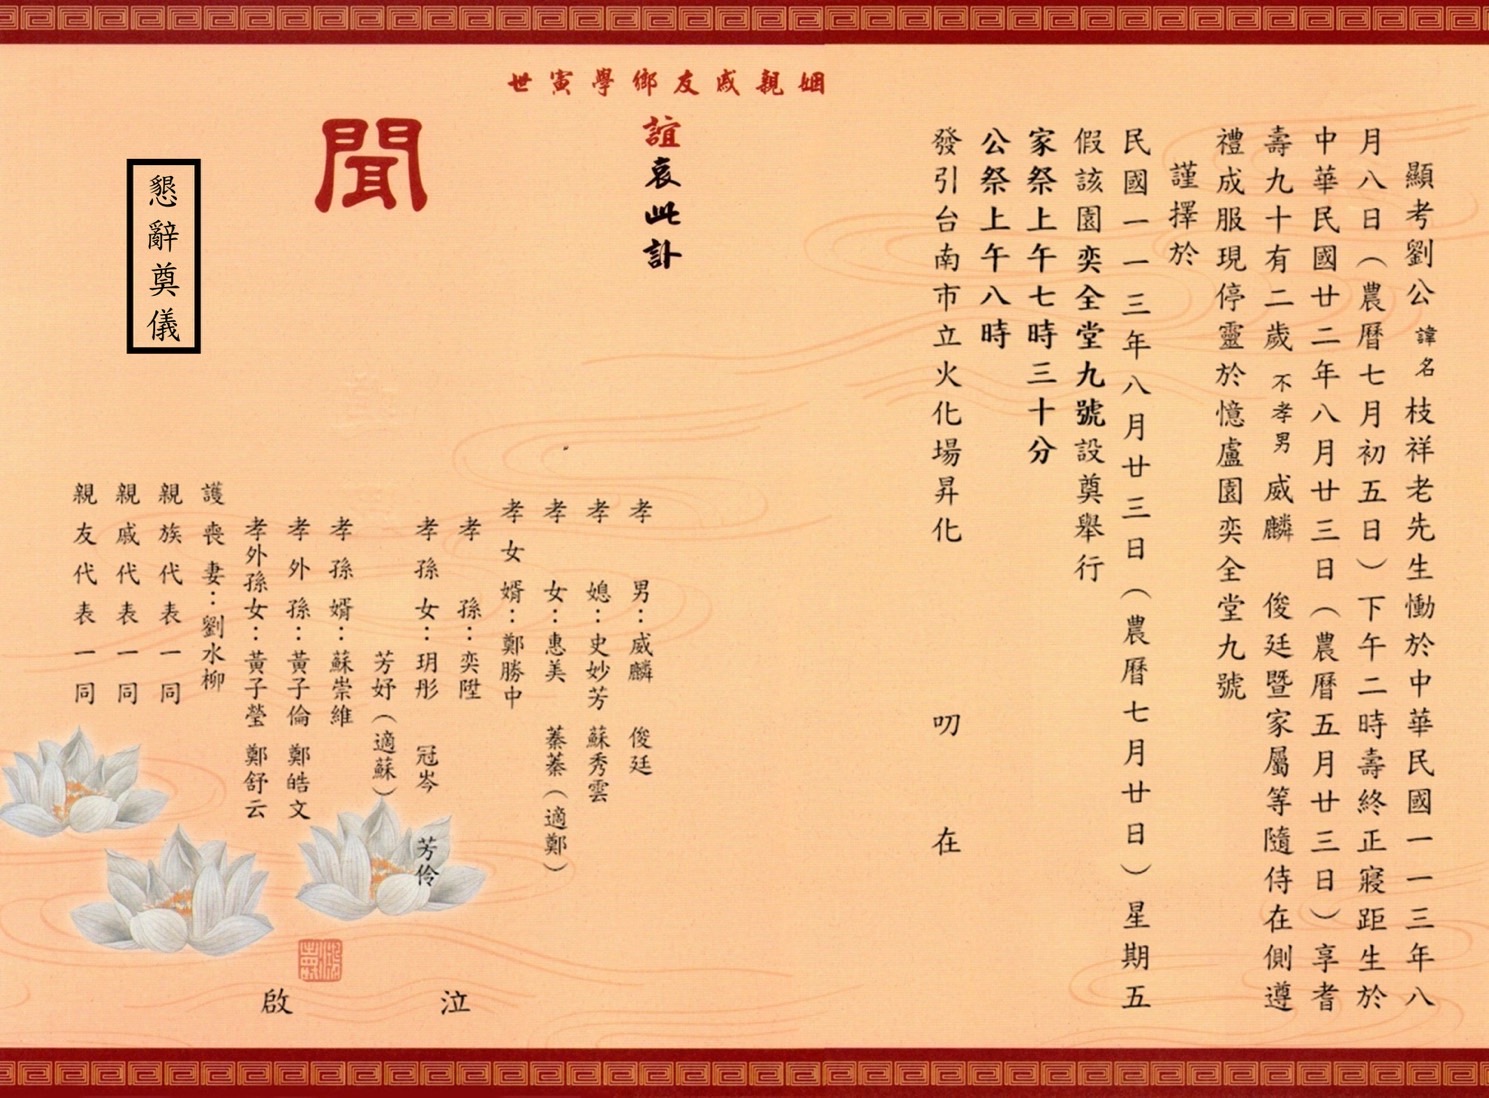 顯考劉公諱名枝祥老先生慟於中華民國一一三年八
月八日（農曆七月初五日）下午二時壽終正寢距生於
中華民國廿二年八月廿三日（農曆五月廿三日）享耆
壽九十有二歲不孝男威麟 俊廷暨家屬等隨侍在側遵
禮成服現停靈於憶盧園奕全堂九號
謹擇於
民國一一三年八月廿三日（農曆七月廿日）星期五
假該園奕全堂九號設奠舉行
家祭上午七時三十分
公祭上午八時
發引台南市立火化場昇化 叨 在
姻親戚友鄉學寅世
誼哀此訃
聞
懇辭奠儀
孝 男：威麟 俊廷
孝 媳：史妙芳 蘇秀雲
孝 女：惠美 蓁蓁（適鄭）
孝女婿：鄭勝中
孝 孫：奕陞
孝孫女：玥彤 冠岑 芳伶
芳妤（適蘇）
孝孫婿：蘇崇維
孝外孫：黃子倫 鄭皓文
孝外孫女：黃子瑩 鄭舒云
護喪妻：劉水柳
親族代表一同
親戚代表一同
親友代表一同
泣 啟